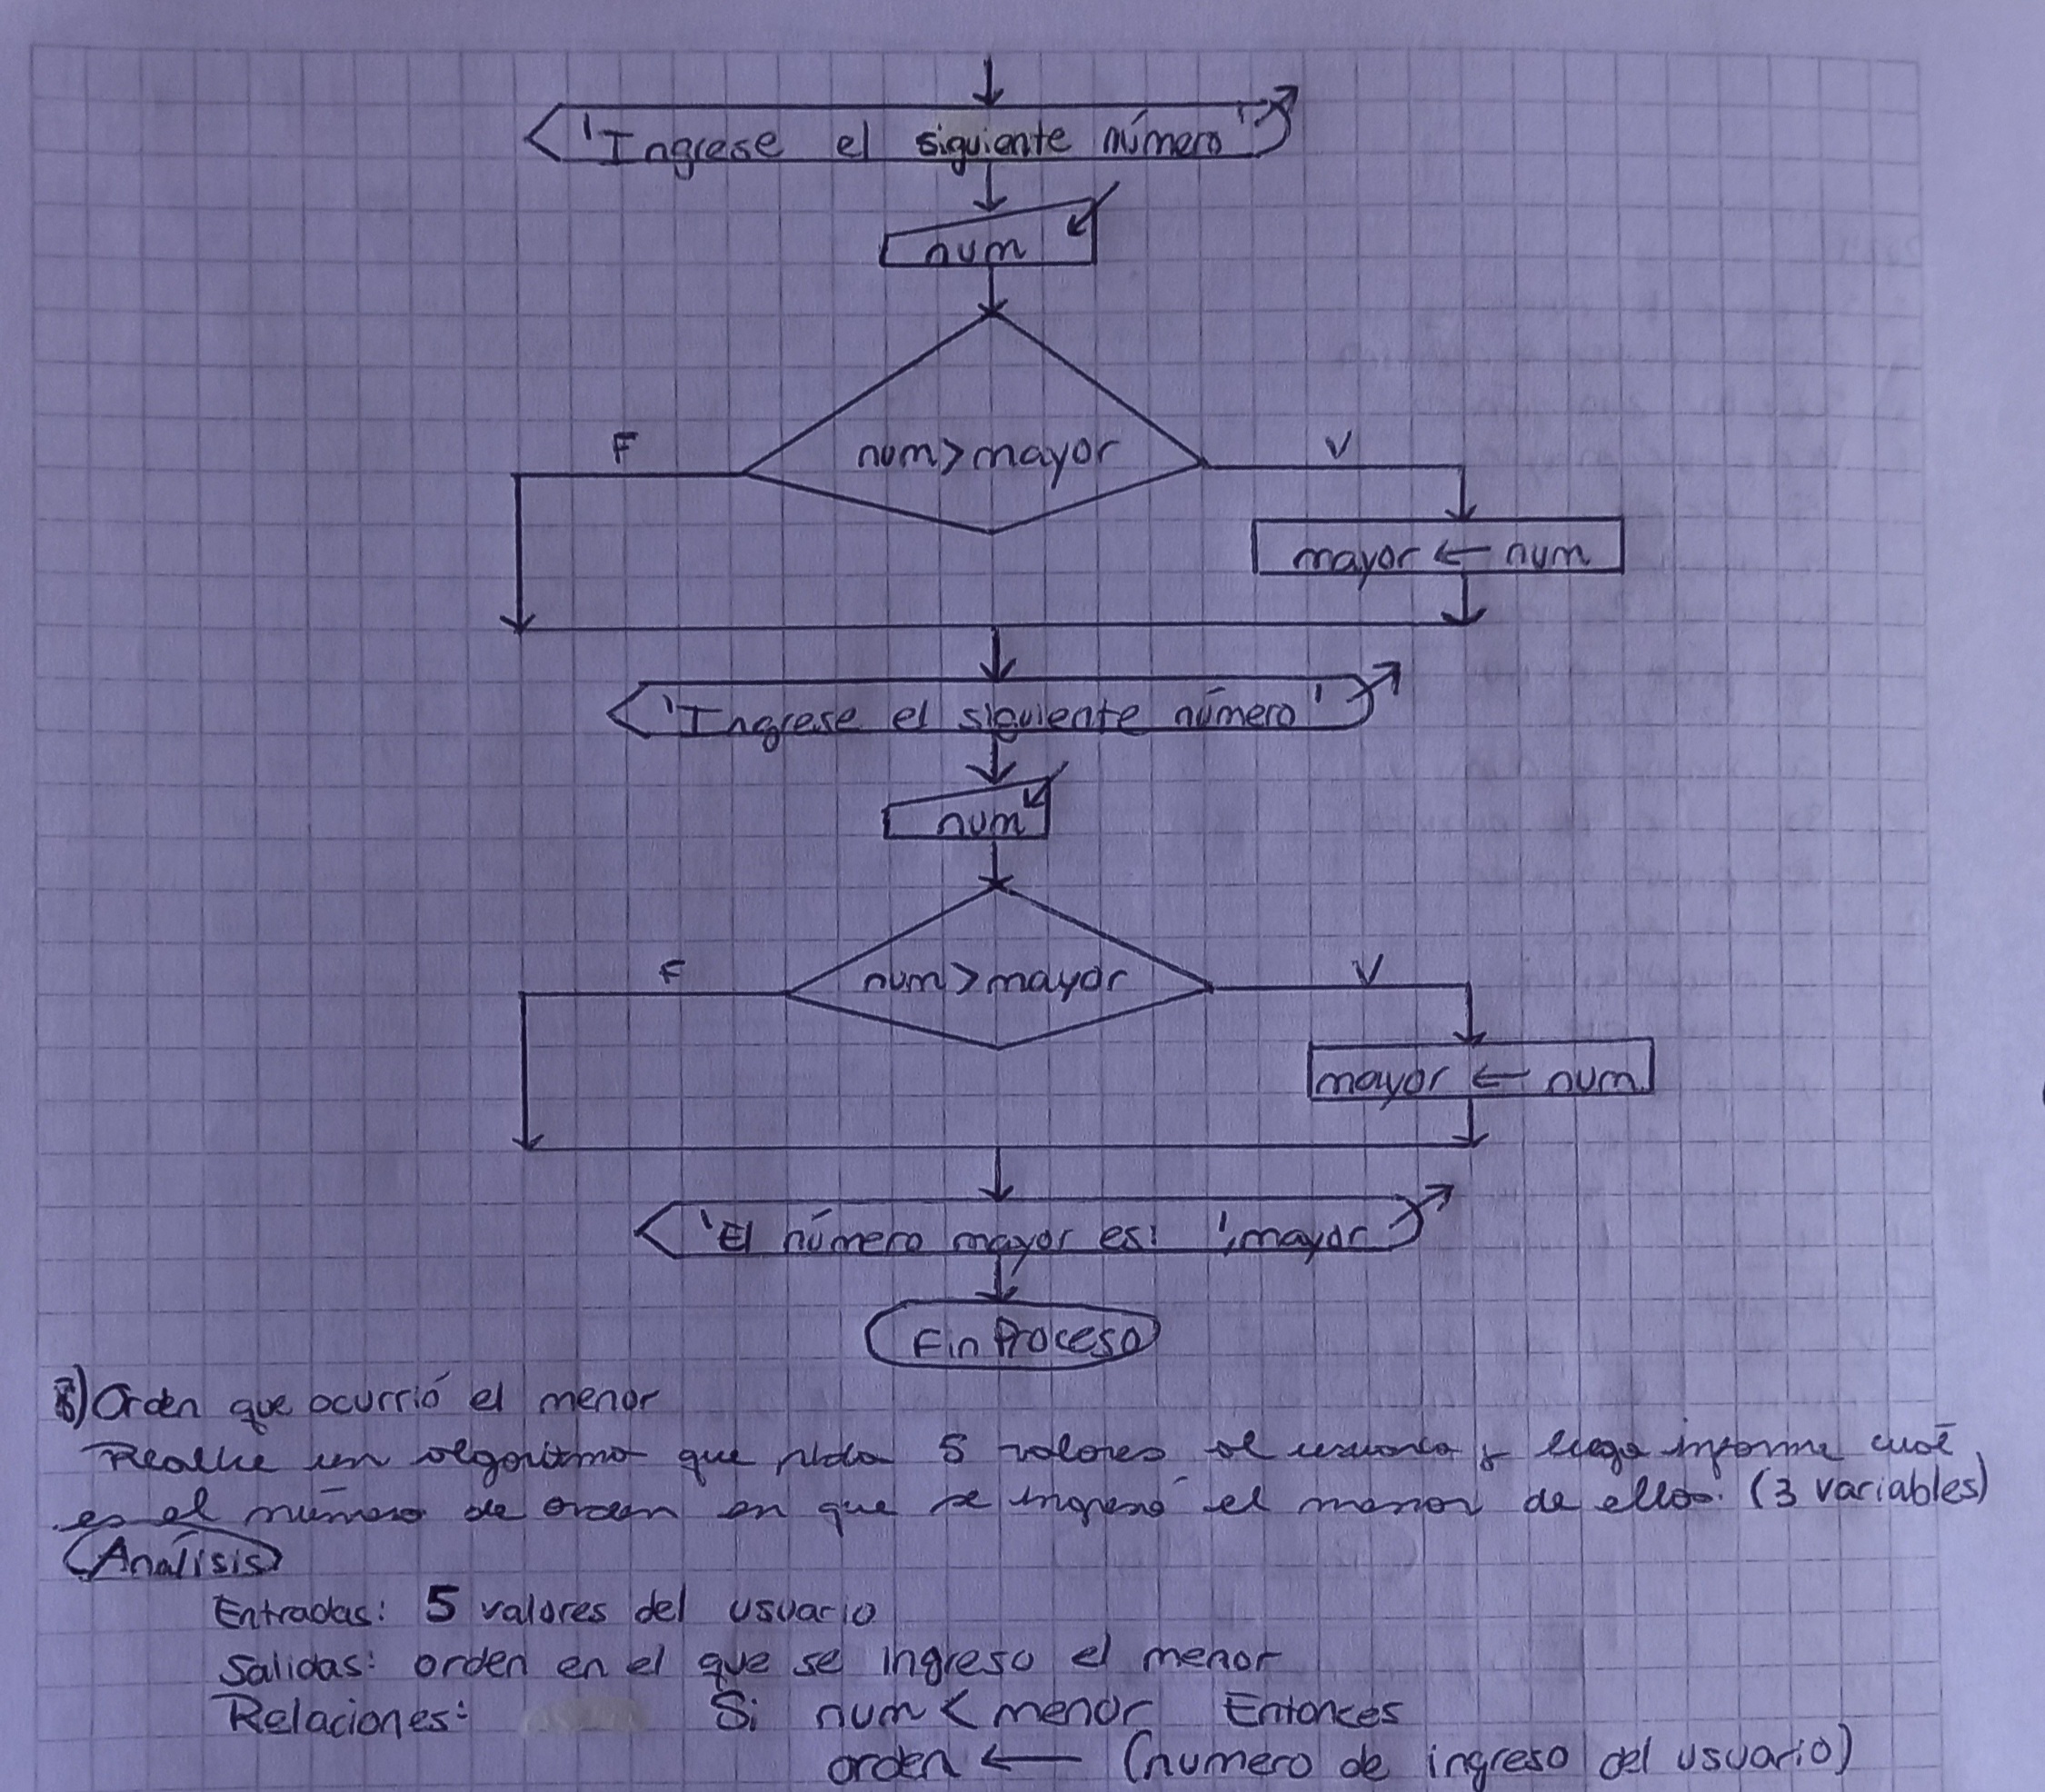 'Ingrese el siguiente número'
num
num>mayor
F
V
mayor ← num
'Ingrese el siguiente número'
num
num>mayor
F
V
mayor ← num
'El número mayor es: ',mayor
Fin Proceso
6) Orden que ocurrió el menor
Realice un algoritmo que pida 5 valores al usuario y luego informe cuál
es el número de orden en que se ingresó el menor de ellos. (3 variables)
Análisis
Entradas: 5 valores del usuario
Salidas: orden en el que se ingreso el menor
Relaciones: Si num < menor Entonces
orden ← (numero de ingreso del usuario)